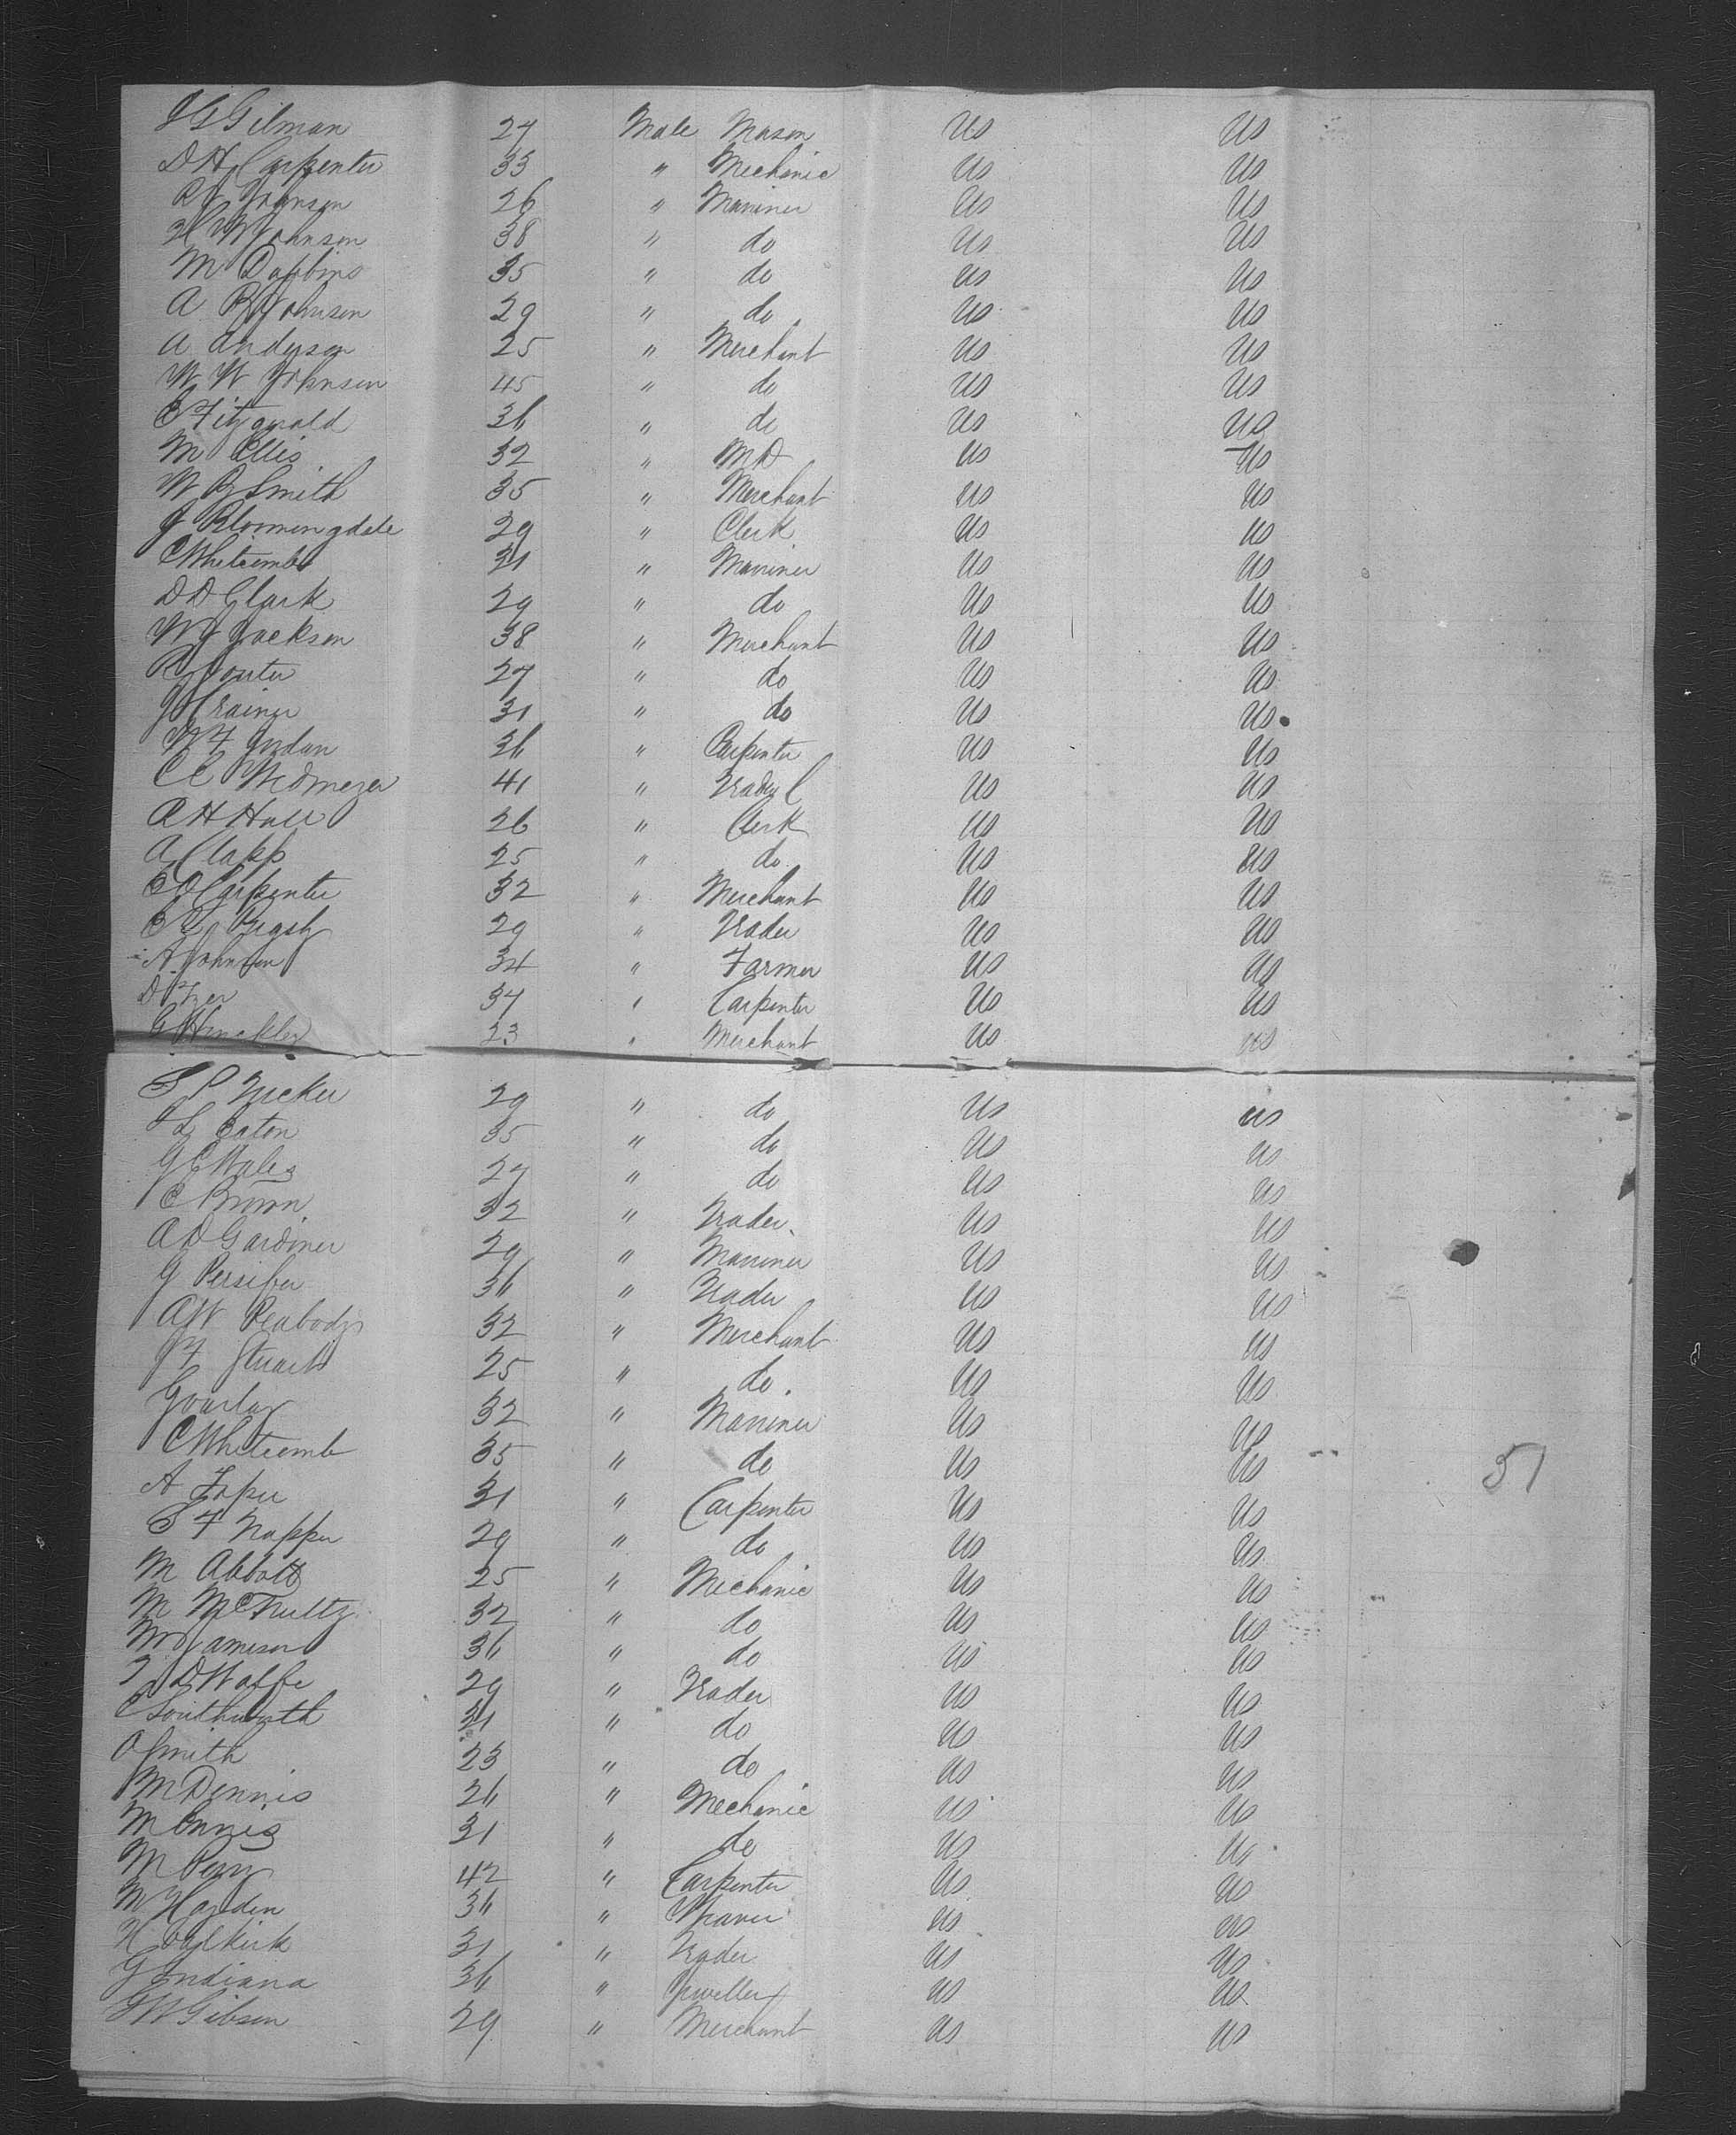 J G Gilman 27 Male Mason US US
D H Carpenter 33 " Mechanic US US
R J Johnson 26 " Mariner US US
H W Johnson 38 " do US US
M Dobbins 35 " do US US
A B Johnson 29 " do US US
A Anderson 25 " Merchant US US
W W Johnson 45 " do US US
E Fitzgerald 36 " do US US
M Ellis 32 " MD US US
W B Smith 35 " Merchant US US
J Bloomingdale 29 " Clerk US US
C Whitcomb 31 " Mariner US US
D D Clark 29 " do US US
W J Jackson 38 " Merchant US US
R Porter 27 " do US US
J Crainer 31 " do US US
W F Jordan 36 " Carpenter US US
C C 41 " Trader US US
A H Hall 26 " Clerk US US
A Clapp 25 " do US US
E D Carpenter 32 " Merchant US US
29 " Trader US US
A Johnson 34 " Farmer US US
D 37 " Carpenter US US
G Hinckley 23 " Merchant US US
S P Tucker 29 " do US US
L Eaton 35 " do US US
G E Wales 27 " do US US
C Brown 32 " Trader US US
A D Gardiner 29 " Mariner US US
G Persifer 36 " Trader US US
A W Peabody 32 " Merchant US US
J F Stuart 25 " do US US
Gourlay 32 " Mariner US US
C Whitcomb 35 " do US US
51
A 31 " Carpenter US US
S F Napper 29 " do US US
M Abbott 25 " Mechanic US US
M McNultz 32 " do US US
M Jameson 36 " do US US
D Wolfe 29 " Trader US US
C Southworth 31 " do US US
O Smith 23 " do US US
M Dennis 26 " Mechanic US US
M Ennis 31 " do US US
M Perry 42 " Carpenter US US
M Hayden 36 " Weaver US US
H 31 " Trader US US
G Indiana 36 " Jeweller US US
G W Gibson 29 " Merchant US US